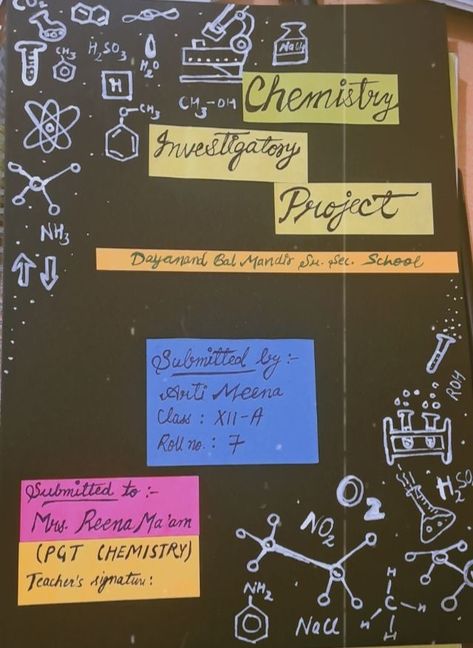 CO₂
CH₃
H₂SO₃
H₂O
NaCl
H
CH₃-OH
CH₃
Chemistry
Investigatory
Project
NH₃
Dayanand Bal Mandir Sr. Sec. School
Submitted by :-
Arti Meena
Class : XII-A
Roll no. : 7
ROH
Submitted to :-
Mrs. Reena Ma'am
(PGT CHEMISTRY)
Teacher's signature:
H₂SO
O₂
NO₂
NH₂
NaCl
H
H-C-H
H